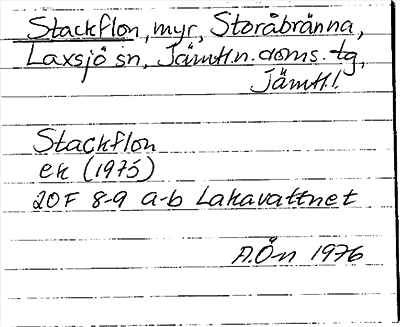 Stackflon, myr, Storåbränna,
Laxsjö sn, Jämtl.n.doms.tg,
Jämtl.l.
Stackflon
ek (1975)
20F 8-9 a-b Lakavattnet
A.Ö-n 1976